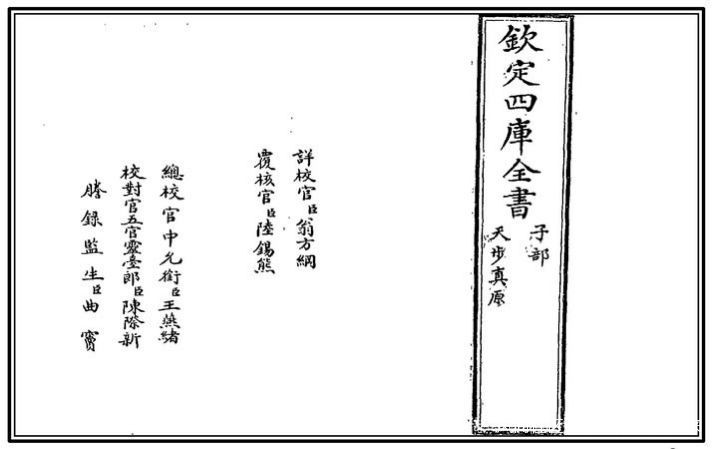 欽定四庫全書
子部
天步真原
詳校官臣翁方綱
覆核官臣陸錫熊
總校官中允銜臣王燕緒
校對官五官靈臺郎臣陳際新
謄錄監生臣曲寶